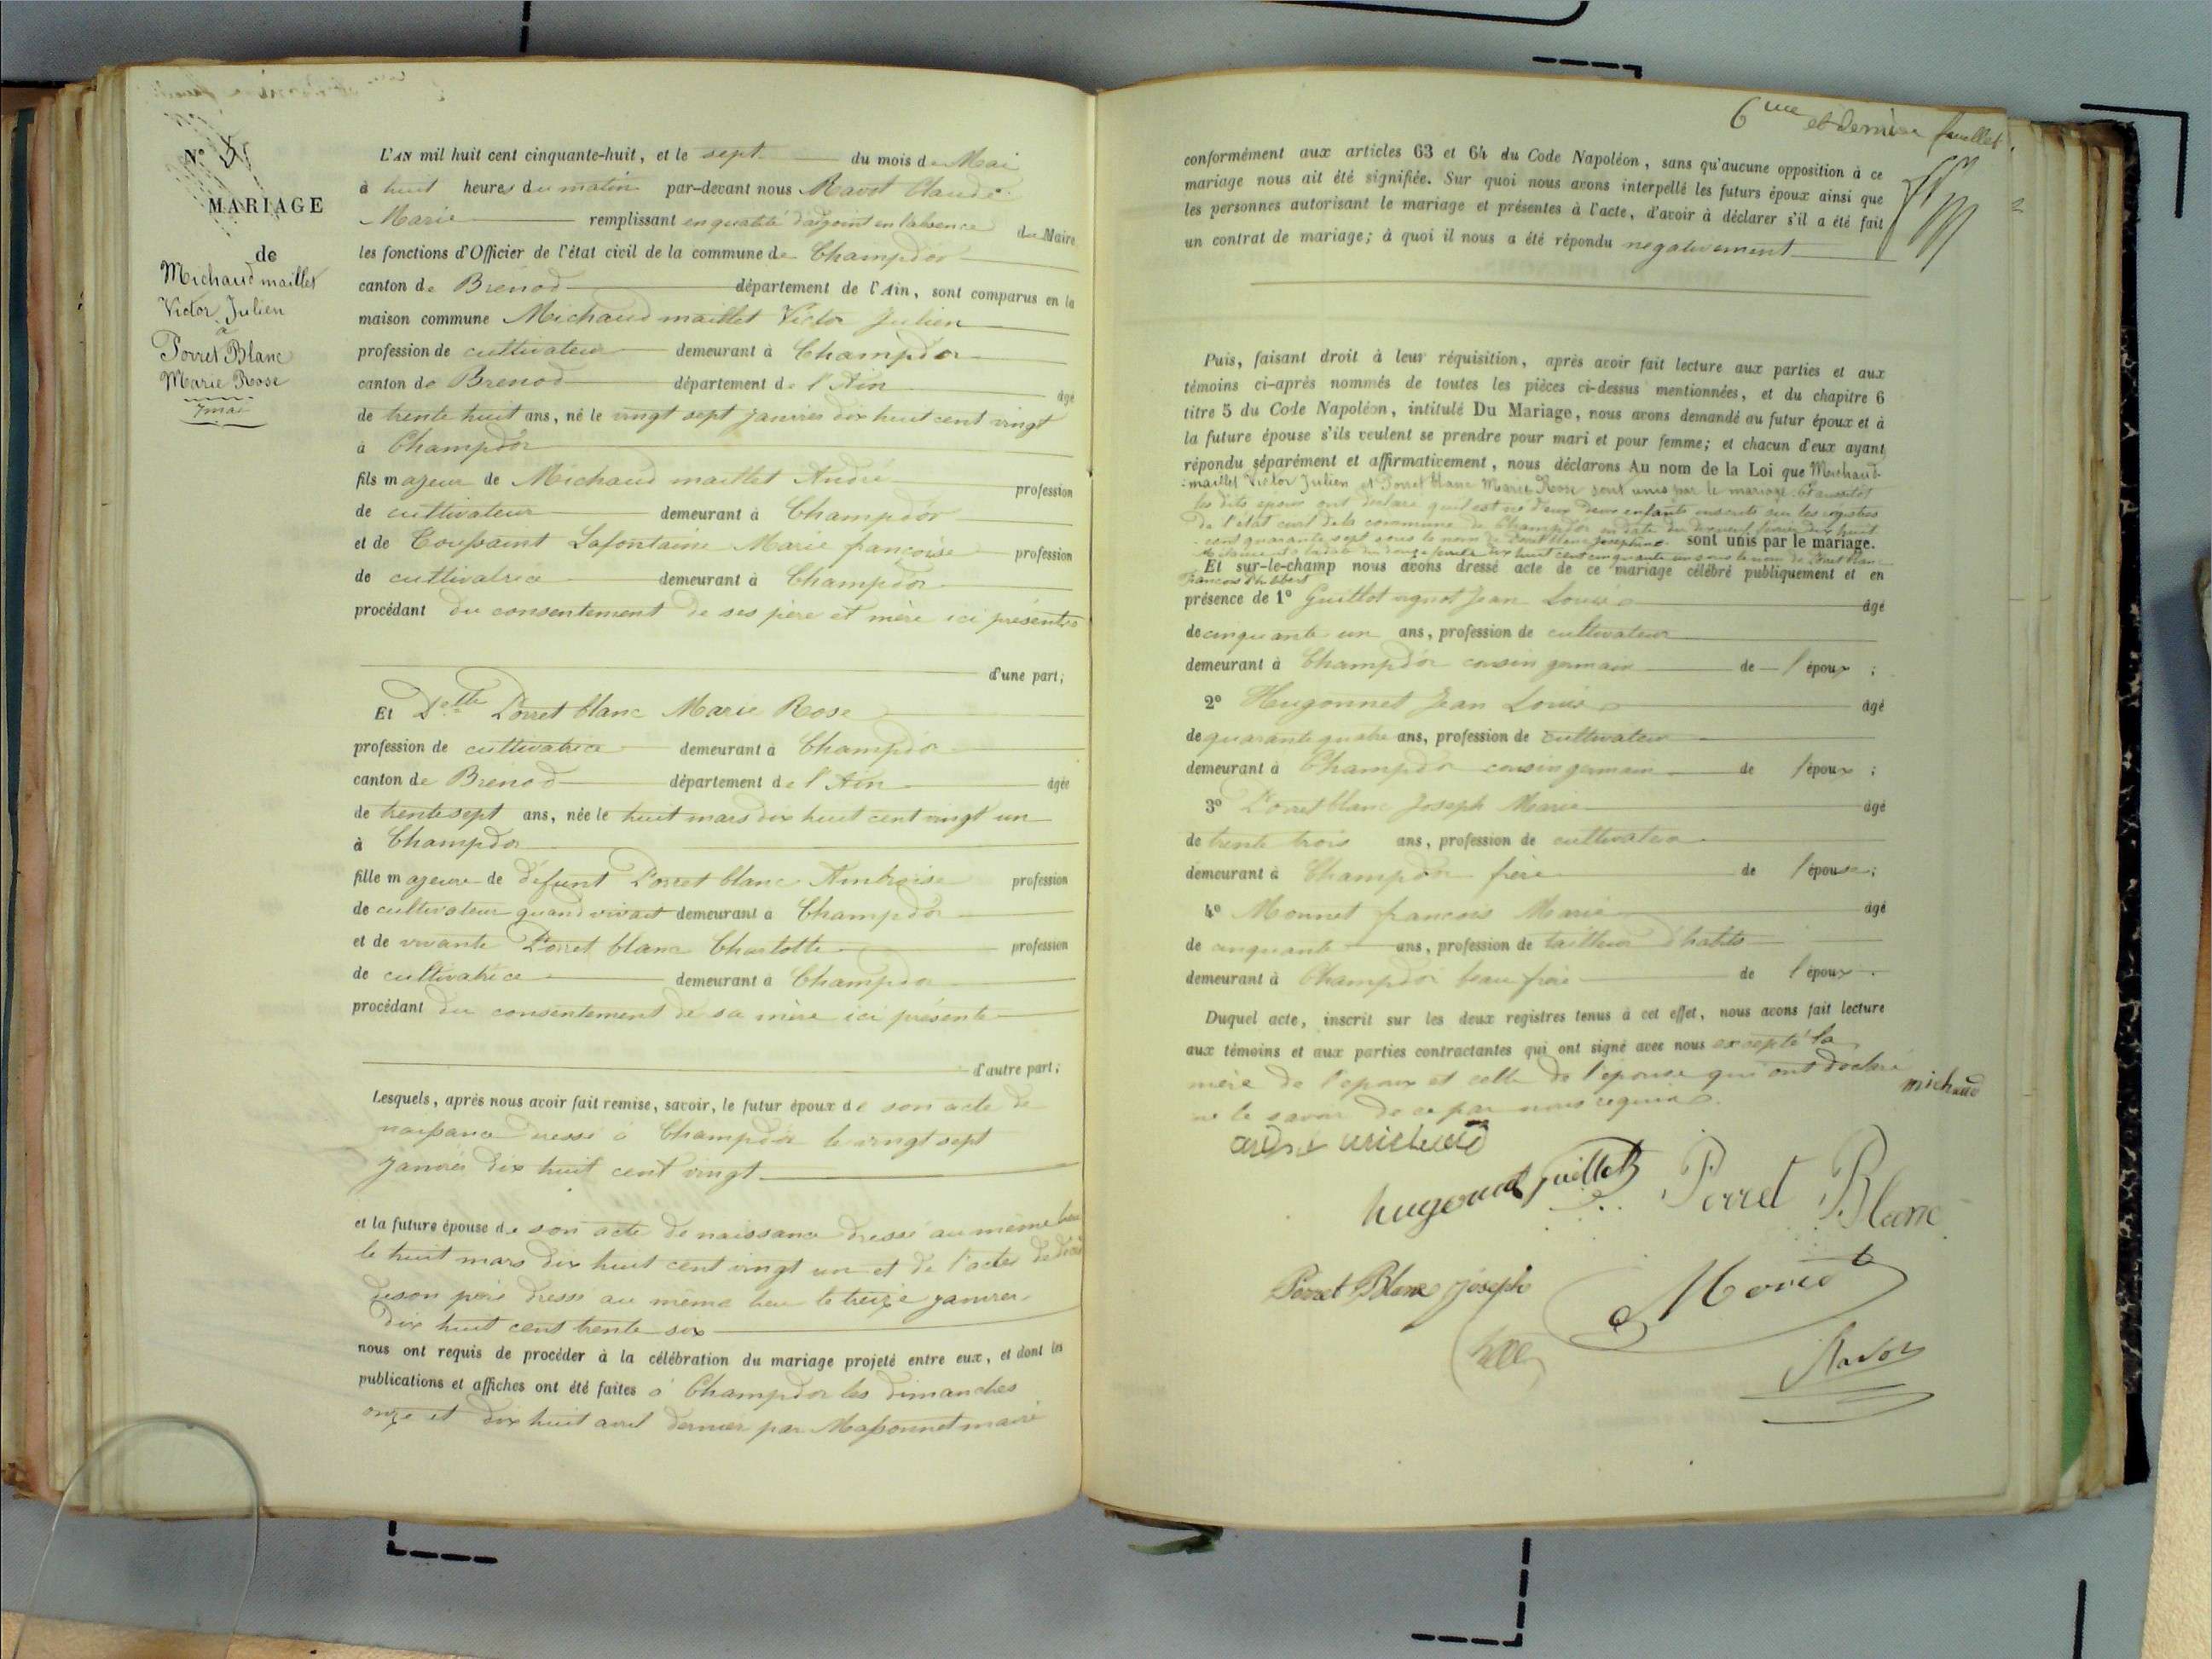 MARIAGE
de
Michaud maillet
Victor Julien
à
Porret Blanc
Marie Rose
7 mai
L'AN mil huit cent cinquante-huit, et le sept du mois de Mai
à huit heures du matin par-devant nous Ravot Claude
Marie remplissant en qualité d'adjoint en l'absence du Maire
les fonctions d'Officier de l'état civil de la commune de Champdor
canton de Brénod département de l'Ain, sont comparus en la
maison commune Michaud maillet Victor Julien
profession de cultivateur demeurant à Champdor
canton de Brenod département de l'Ain âgé
de trente huit ans, né le vingt sept janvier dix huit cent vingt
à Champdor
fils majeur de Michaud maillet André profession
de cultivateur demeurant à Champdor
et de Toussaint Lafontaine Marie françoise profession
de cultivatrice demeurant à Champdor
procédant du consentement de ses père et mère ici présents
d'une part;
Et Delle Porret blanc Marie Rose
profession de cultivatrice demeurant à Champdor
canton de Brénod département de l'Ain âgée
de trente sept ans, née le huit mars dix huit cent vingt un
à Champdor
fille majeure de défunt Porret blanc Ambroise profession
de cultivateur quand vivait demeurant à Champdor
et de vivante Porret blanc Charlotte profession
de cultivatrice demeurant à Champdor
procédant du consentement de sa mère ici présente
d'autre part;
Lesquels, après nous avoir fait remise, savoir, le futur époux de son acte de
naissance dressé à Champdor le vingt sept
janvier dix huit cent vingt
et la future épouse de son acte de naissance dressé au même lieu
le huit mars dix huit cent vingt un et de l'acte de décès
de son père dressé au même lieu le treize janvier
dix huit cent trente six
nous ont requis de procéder à la célébration du mariage projeté entre eux, et dont les
publications et affiches ont été faites à Champdor les dimanches
onze et dix huit avril dernier par Massonnet maire
6me et dernier feuillet
conformément aux articles 63 et 64 du Code Napoléon, sans qu'aucune opposition à ce
mariage nous ait été signifiée. Sur quoi nous avons interpellé les futurs époux ainsi que
les personnes autorisant le mariage et présentes à l'acte, d'avoir à déclarer s'il a été fait
un contrat de mariage; à quoi il nous a été répondu negativement
Puis, faisant droit à leur réquisition, après avoir fait lecture aux parties et aux
témoins ci-après nommés de toutes les pièces ci-dessus mentionnées, et du chapitre 6
titre 5 du Code Napoléon, intitulé Du Mariage, nous avons demandé au futur époux et à
la future épouse s'ils veulent se prendre pour mari et pour femme; et chacun d'eux ayant
répondu séparément et affirmativement, nous déclarons Au nom de la Loi que Michaud-
maillet Victor Julien et Porret blanc Marie Rose sont unis par le mariage. Et aussitôt
les dits époux ont déclaré qu'il est né d'eux deux enfants inscrits sur les registres
de l'état civil de la commune de Champdor en date du février dix huit
cent quarante sept sous le nom de Porret blanc Joséphine sont unis par le mariage.
dix huit cent cinquante un sous le nom de Porret blanc
Et sur-le-champ nous avons dressé acte de ce mariage célébré publiquement et en
françois Philibert
présence de 1º Guillot vignot Jean Louis âgé
de cinquante un ans, profession de cultivateur
demeurant à Champdor cousin germain de l'époux;
2º Hugonnet Jean Louis âgé
de quarante quatre ans, profession de cultivateur
demeurant à Champdor cousin germain de l'époux;
3º Porret blanc Joseph Marie âgé
de trente trois ans, profession de cultivateur
demeurant à Champdor frère de l'épouse;
4º Monnet francois Marie âgé
de cinquante ans, profession de tailleur d'habits
demeurant à Champdor beau frère de l'époux.
Duquel acte, inscrit sur les deux registres tenus à cet effet, nous avons fait lecture
aux témoins et aux parties contractantes qui ont signé avec nous excepté la
mère de l'époux et celle de l'épouse qui ont déclaré
ne le savoir de ce par nous requises.
michaud
andré michaud
hugonnet guillot Porret Blanc
Porret Blanc joseph
Monnet
Ravot